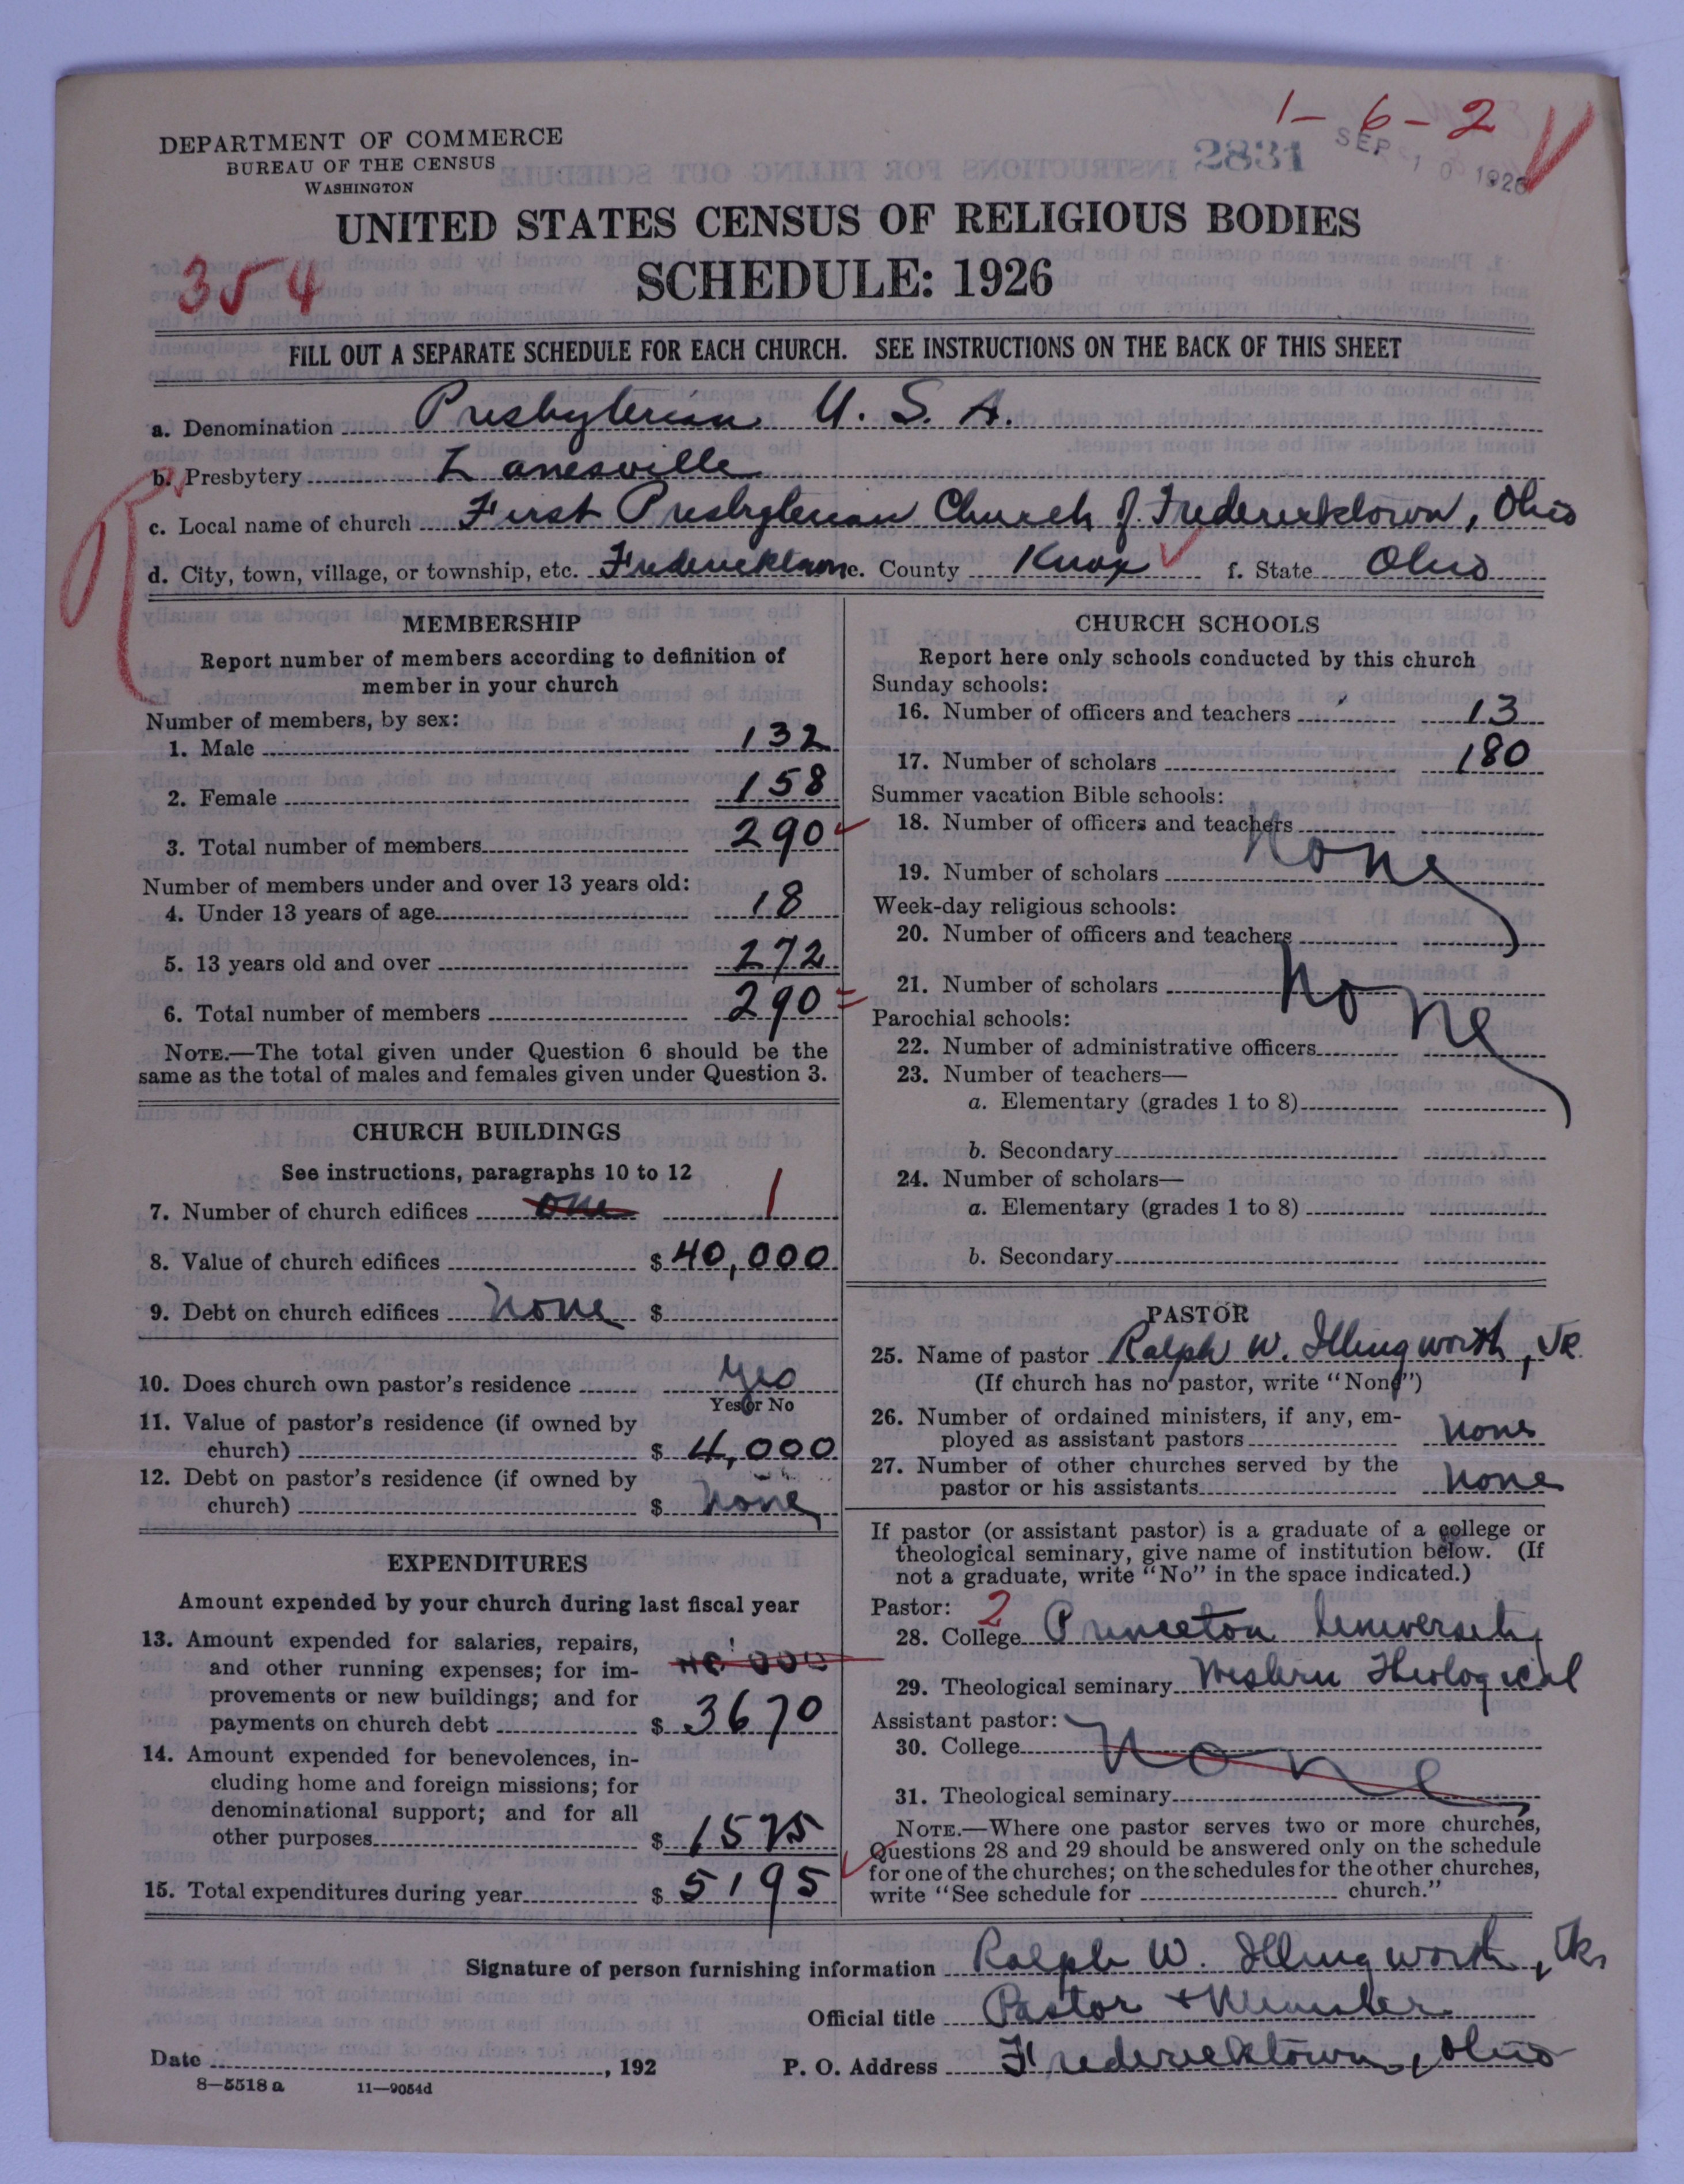 1-6-2
DEPARTMENT OF COMMERCE
BUREAU OF THE CENSUS
WASHINGTON
2831
SEP 10 1926
UNITED STATES CENSUS OF RELIGIOUS BODIES
354
SCHEDULE: 1926
FILL OUT A SEPARATE SCHEDULE FOR EACH CHURCH. SEE INSTRUCTIONS ON THE BACK OF THIS SHEET
a. Denomination Presbyterian U. S. A.
b. Presbytery Zanesville
c. Local name of church First Presbyterian Church of Fredericktown, Ohio
d. City, town, village, or township, etc. Fredericktown e. County Knox f. State Ohio
MEMBERSHIP
Report number of members according to definition of
member in your church
Number of members, by sex:
1. Male 132
2. Female 158
3. Total number of members 290
Number of members under and over 13 years old:
4. Under 13 years of age 18
5. 13 years old and over 272
6. Total number of members 290
NOTE.—The total given under Question 6 should be the
same as the total of males and females given under Question 3.
CHURCH BUILDINGS
See instructions, paragraphs 10 to 12
7. Number of church edifices one 1
8. Value of church edifices $ 40,000
9. Debt on church edifices None $
10. Does church own pastor's residence yes
Yes or No
11. Value of pastor's residence (if owned by
church) $ 4,000
12. Debt on pastor's residence (if owned by
church) $ None
EXPENDITURES
Amount expended by your church during last fiscal year
13. Amount expended for salaries, repairs,
and other running expenses; for im-
provements or new buildings; and for
payments on church debt $ 3670
14. Amount expended for benevolences, in-
cluding home and foreign missions; for
denominational support; and for all
other purposes $ 1525
15. Total expenditures during year $ 5195
CHURCH SCHOOLS
Report here only schools conducted by this church
Sunday schools:
16. Number of officers and teachers 13
17. Number of scholars 180
Summer vacation Bible schools:
18. Number of officers and teachers
None
19. Number of scholars
Week-day religious schools:
20. Number of officers and teachers
21. Number of scholars None
Parochial schools:
22. Number of administrative officers
23. Number of teachers—
a. Elementary (grades 1 to 8)
b. Secondary
24. Number of scholars—
a. Elementary (grades 1 to 8)
b. Secondary
PASTOR
25. Name of pastor Ralph W. Illingworth, Jr.
(If church has no pastor, write "None")
26. Number of ordained ministers, if any, em-
ployed as assistant pastors None
27. Number of other churches served by the
pastor or his assistants None
If pastor (or assistant pastor) is a graduate of a college or
theological seminary, give name of institution below. (If
not a graduate, write "No" in the space indicated.)
Pastor: 2
28. College Princeton University
29. Theological seminary Western Theological
Assistant pastor:
30. College None
31. Theological seminary
NOTE.—Where one pastor serves two or more churches,
Questions 28 and 29 should be answered only on the schedule
for one of the churches; on the schedules for the other churches,
write "See schedule for church."
Signature of person furnishing information Ralph W. Illingworth, Jr.
Official title Pastor + Minister
Date , 192 P. O. Address Fredericktown, Ohio
8—5518 a 11—9054d